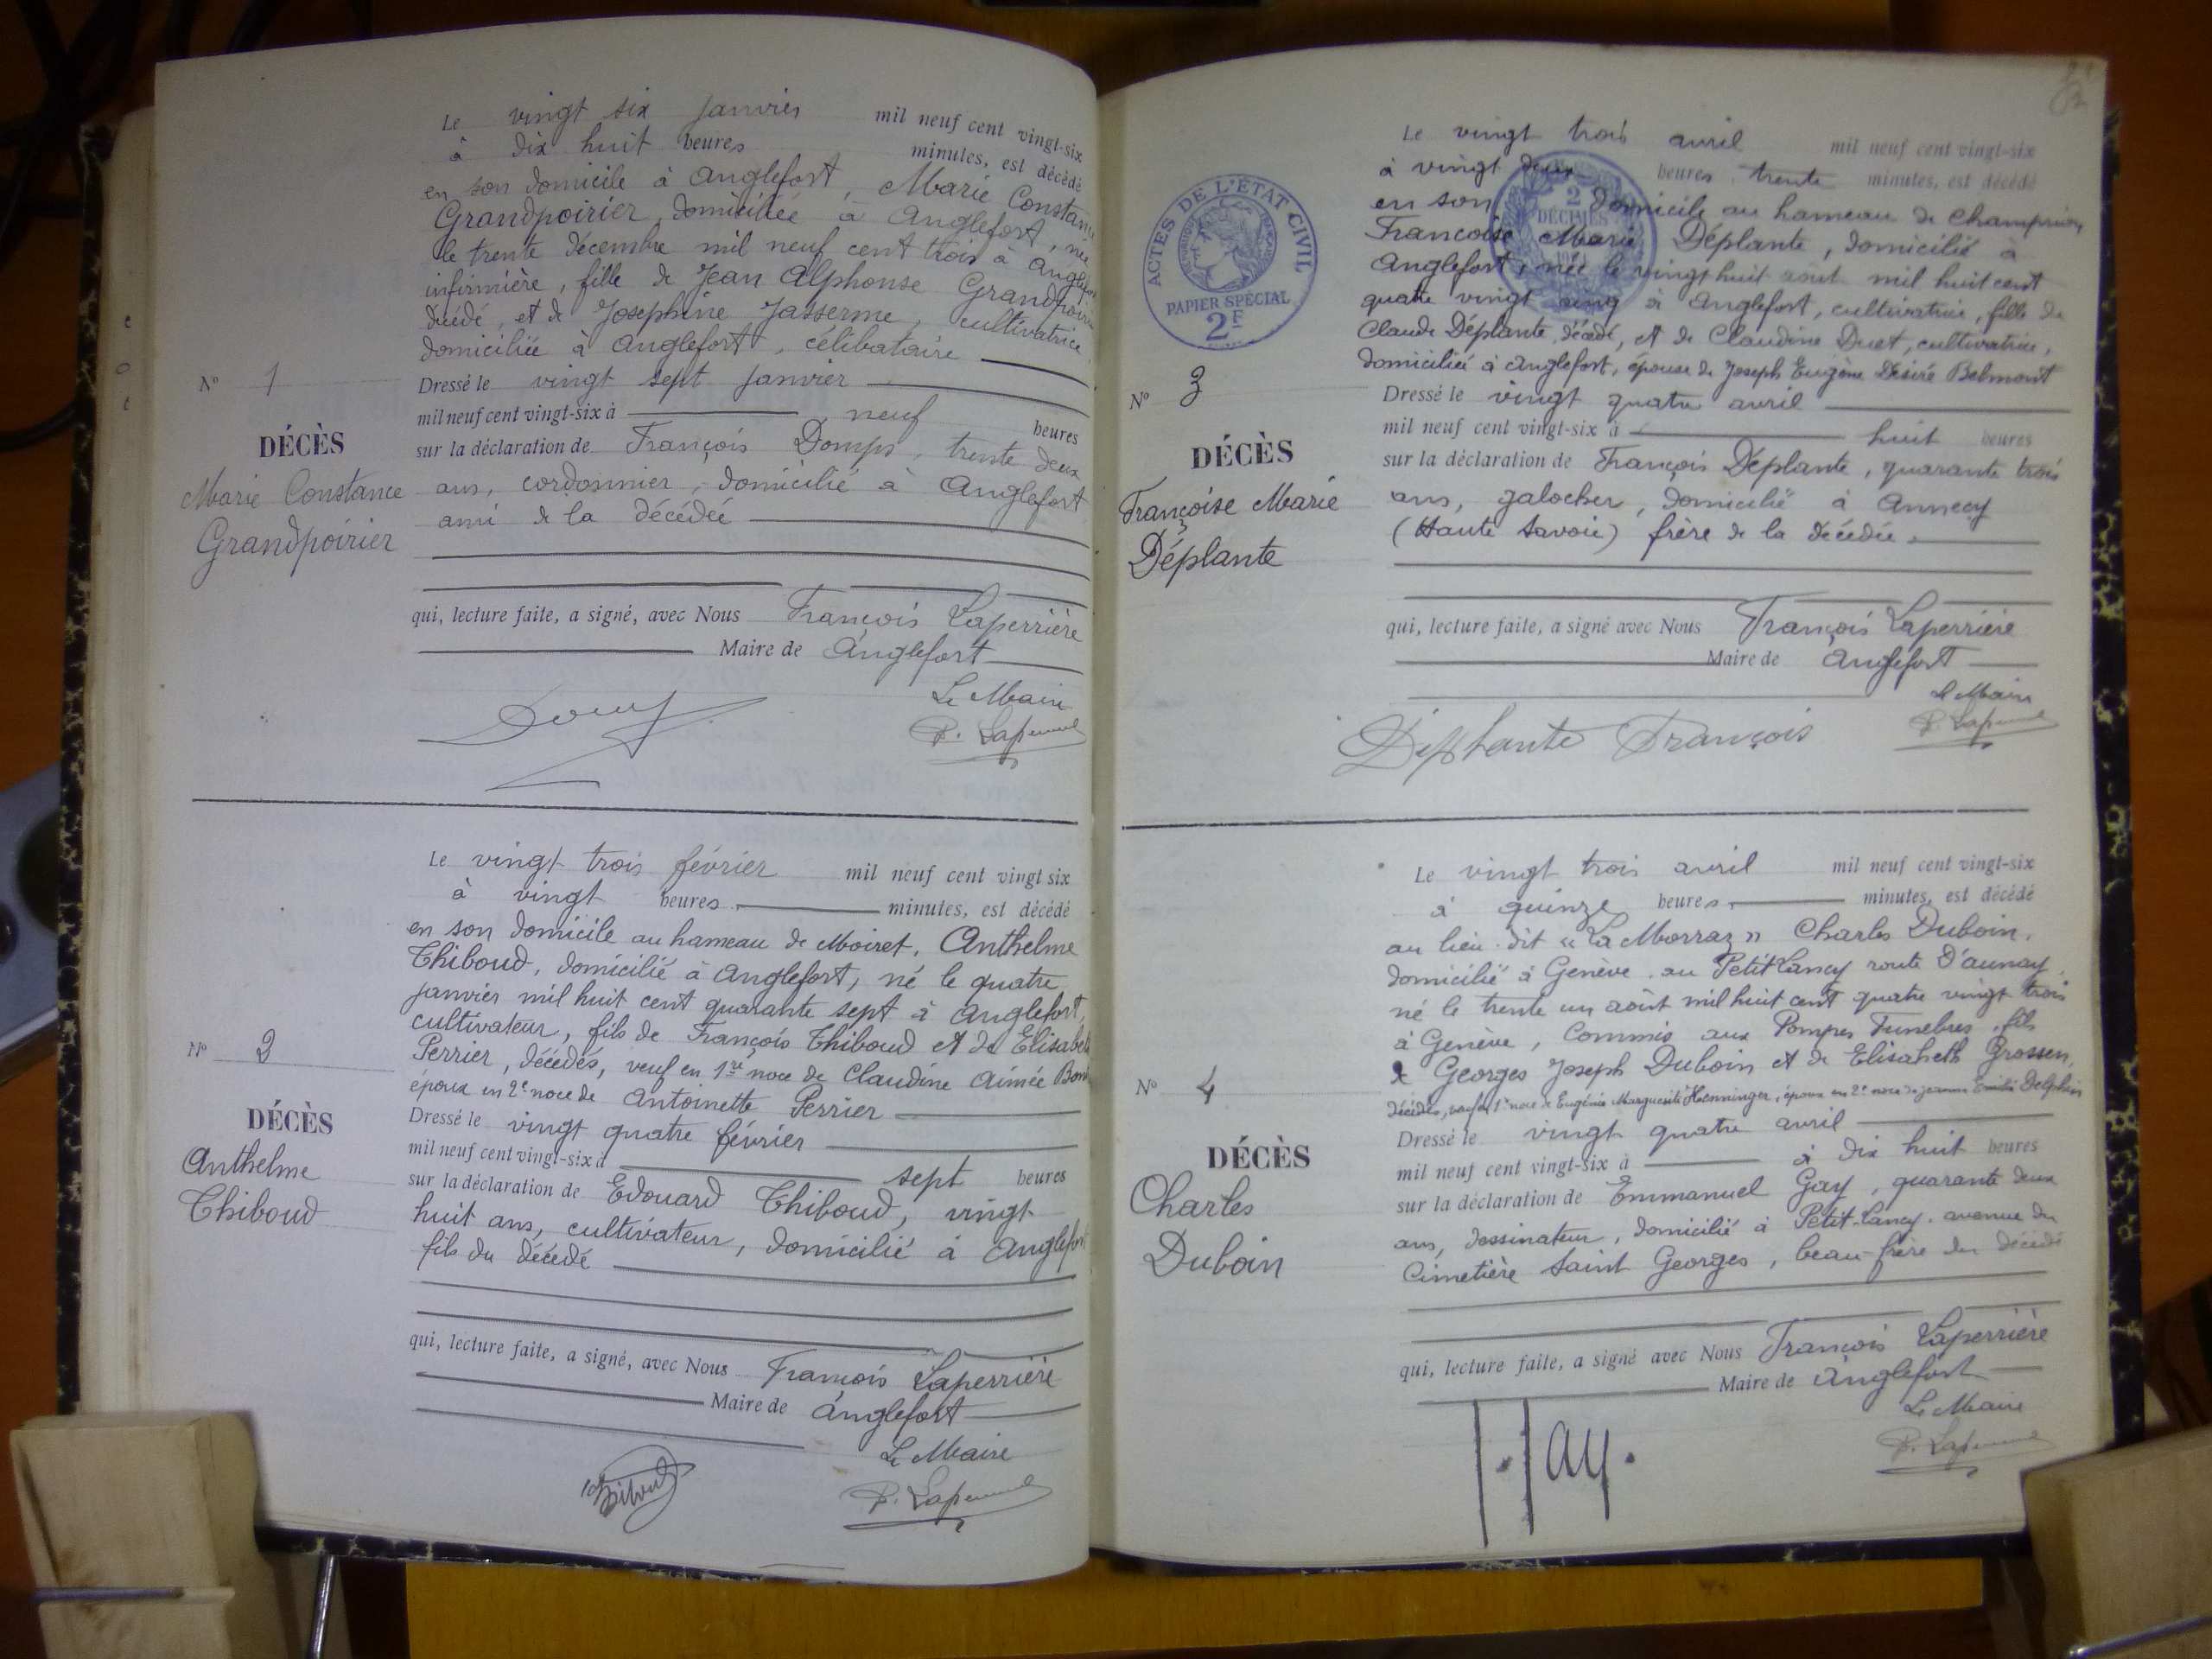 Le vingt six janvier mil neuf cent vingt-six
à dix huit heures minutes, est décédé
en son domicile à Anglefort, Marie Constance
Grandpoirier, domiciliée à Anglefort, née
le trente décembre mil neuf cent trois à Anglefort
infirmière, fille de Jean Alphonse Grandpoirier
décédé, et de Josephine Jasserme, cultivatrice,
domiciliée à Anglefort, célibataire
Nº 1
Dressé le vingt sept janvier
mil neuf cent vingt-six à neuf heures
DÉCÈS
sur la déclaration de François Domps, trente deux
Marie Constance
ans, cordonnier, domicilié à Anglefort
Grandpoirier
ami de la décédée
qui, lecture faite, a signé, avec Nous François Laperrière
Maire de Anglefort
Le Maire
Le vingt trois février mil neuf cent vingt six
à vingt heures minutes, est décédé
en son domicile au hameau de Moiret, Anthelme
Thiboud, domicilié à Anglefort, né le quatre
janvier mil huit cent quarante sept à Anglefort,
cultivateur, fils de François Thiboud et de Elisabeth
Nº 2
Perrier, décédés, veuf en 1re noce de Claudine Aimée
époux en 2e noce de Antoinette Perrier
DÉCÈS
Dressé le vingt quatre février
mil neuf cent vingt-six à sept heures
Anthelme
Thiboud
sur la déclaration de Edouard Thiboud, vingt
huit ans, cultivateur, domicilié à Anglefort
fils du décédé
qui, lecture faite, a signé, avec Nous François Laperrière
Maire de Anglefort
Le Maire
ACTES DE L'ÉTAT CIVIL
PAPIER SPÉCIAL
2F
2
DÉCIMES
Le vingt trois avril mil neuf cent vingt-six
à vingt deux heures trente minutes, est décédé
en son domicile au hameau de Champrion
Francoise Marie Déplante, domiciliée à
Anglefort, née le vingt huit août mil huit cent
quatre vingt cinq à Anglefort, cultivatrice, fille de
Claude Déplante décédé, et de Claudine Duet, cultivatrice,
domiciliée à Anglefort, épouse de Joseph Eugène Désiré Belmont
Nº 3
Dressé le vingt quatre avril
mil neuf cent vingt-six à huit heures
DÉCÈS
sur la déclaration de François Déplante, quarante trois
Françoise Marie
Déplante
ans, galocher, domicilié à Annecy
(Haute Savoie) frère de la décédée.
qui, lecture faite, a signé avec Nous François Laperrière
Maire de Anglefort
Le Maire
Déplante François
Le vingt trois avril mil neuf cent vingt-six
à quinze heures minutes, est décédé
au lieu dit « La Morraz » Charles Duboin,
domicilié à Genève au Petit Lancy route d'aunay,
né le trente un août mil huit cent quatre vingt trois
à Genève, Commis aux Pompes Funebres, fils
de Georges Joseph Duboin et de Elisabeth Grossen,
Nº 4
décédés, veuf en 1e noce de Eugénie Marguerite Hoenninger, époux en 2e noce de Jeanne Emilie Delphin
Dressé le vingt quatre avril
DÉCÈS
mil neuf cent vingt-six à à dix huit heures
Charles
Duboin
sur la déclaration de Emmanuel Gay, quarante deux
ans, dessinateur, domicilié à Petit-Lancy, avenue du
Cimetière Saint Georges, beau-frère du décédé
qui, lecture faite, a signé avec Nous François Laperrière
Maire de Anglefort
Le Maire